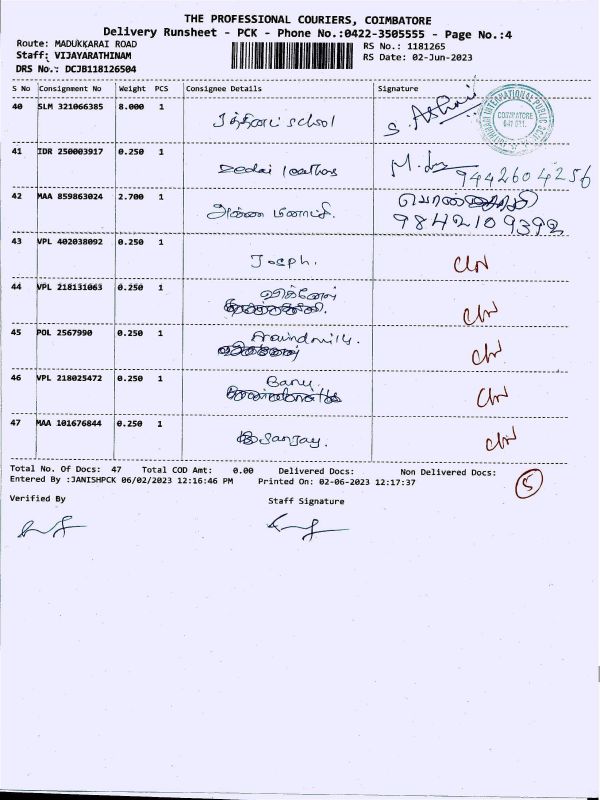 THE PROFESSIONAL COURIERS, COIMBATORE
Delivery Runsheet - PCK - Phone No.:0422-3505555 - Page No.:4
Route: MADUKKARAI ROAD
RS No.: 1181265
Staff: VIJAYARATHINAM
RS Date: 02-Jun-2023
DRS No.: DCJB118126504
S No Consignment No Weight PCS Consignee Details Signature
40 SLM 321066385 8.000 1 school
41 IDR 250003917 0.250 1
9442604256
42 MAA 859863024 2.700 1 அண்ண
9842109392
43 VPL 402038092 0.250 1 Joseph.
44 VPL 218131063 0.250 1
45 POL 2567990 0.250 1
46 VPL 218025472 0.250 1 Banu
47 MAA 101676844 0.250 1 Sanjay.
Total No. Of Docs: 47 Total COD Amt: 0.00 Delivered Docs: Non Delivered Docs:
Entered By :JANISHPCK 06/02/2023 12:16:46 PM Printed On: 02-06-2023 12:17:37
5
Verified By Staff Signature